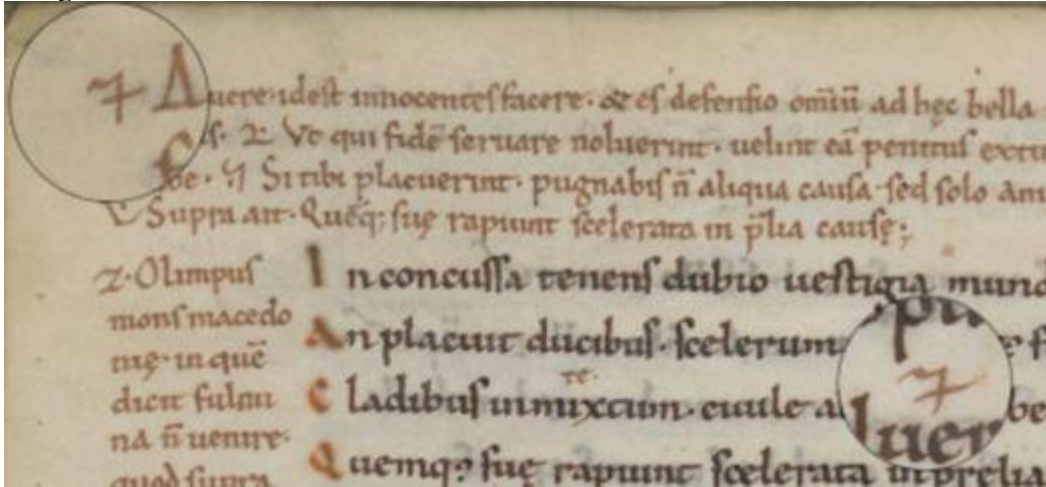 ⁊ Auere·idest innocentes facere· defensio omīū ad hęc bella
Vt qui fidē seruare noluerint· uelint eā penitus
Si tibi placuerint· pugnabis n̄ aliqua causa·sed solo
Supra ait·Quēq; suę rapiunt scelerata in p̄lia causę;
z·Olimpus
mons macedo
nię·in quē
dicit fulmi
na n̄ uenire·
quod supra
Inconcussa tenens dubio uestigia
An placuit ducibus·scelerum
te·
Cladibus inmixtum·ciuile
⁊
Quemq; suę rapiunt scelerata in prelia